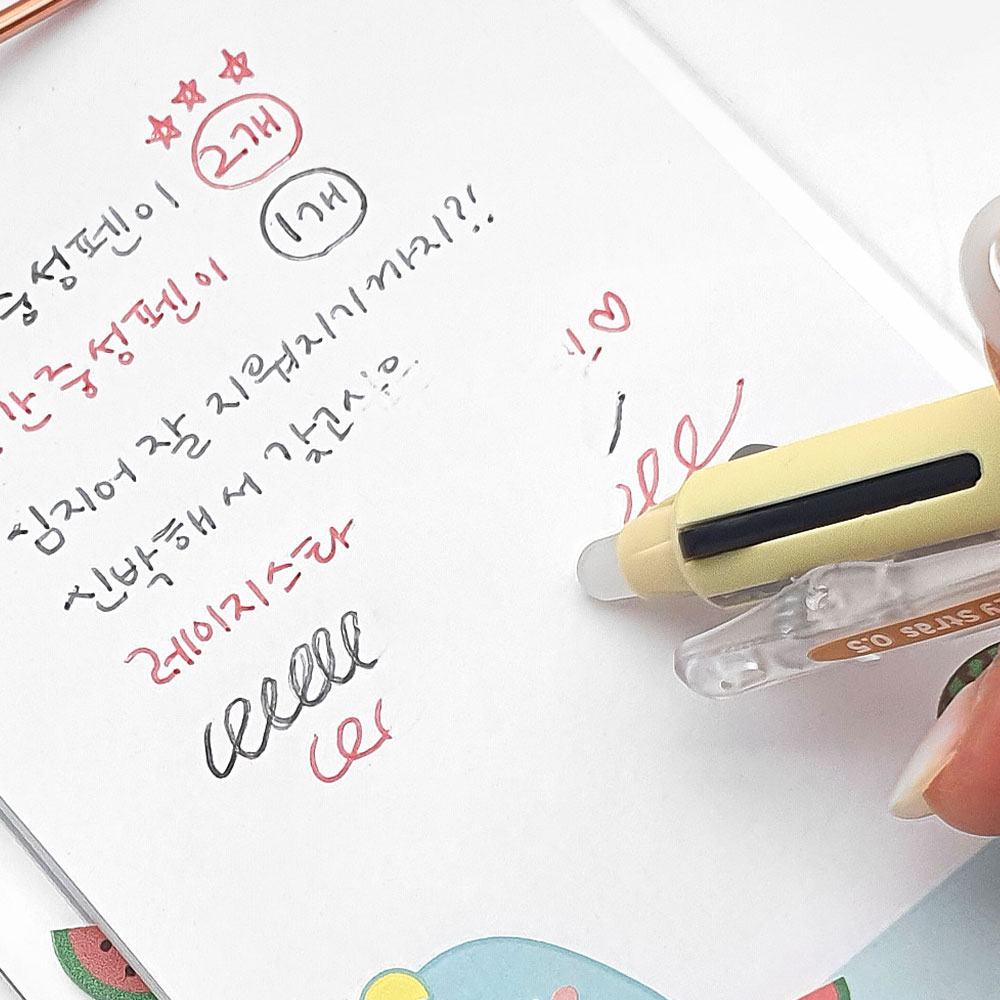 중성펜이 2개
간 중성펜이 1개
심지어 잘 지워지기까지?!
신박해서 갖고싶은
레이지스타
Stras 0.5